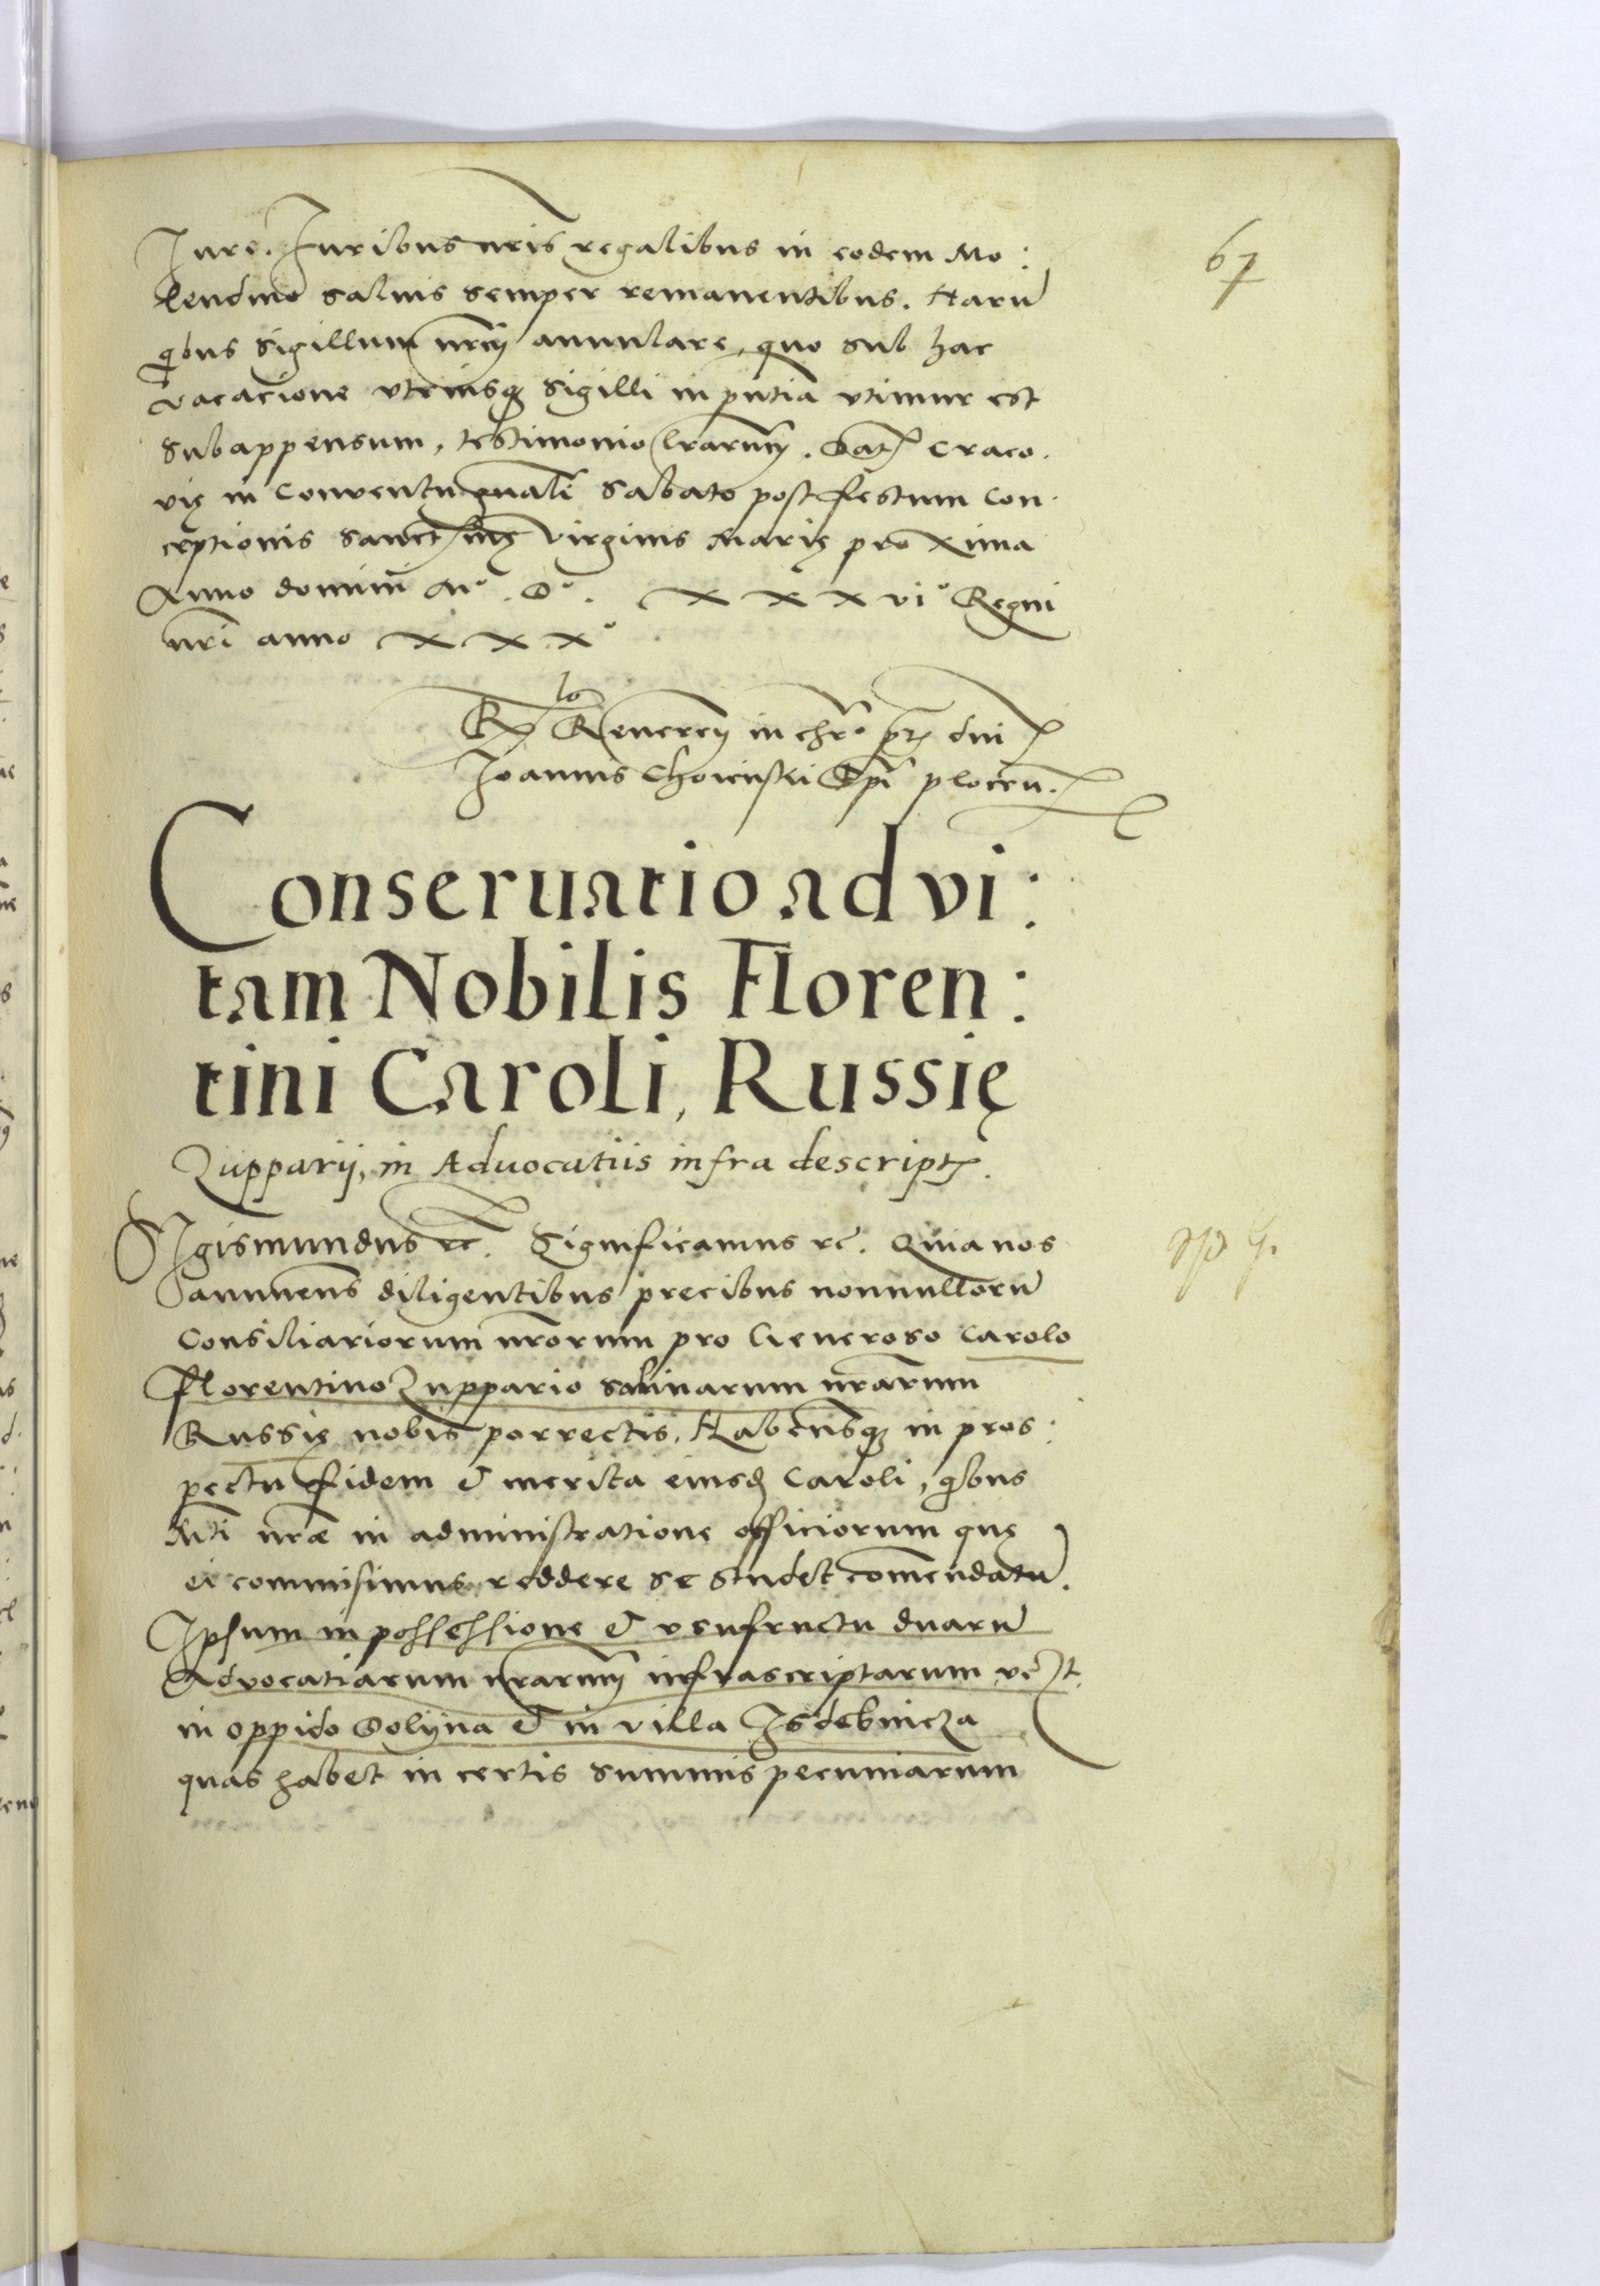 67
Jure. Juribus nris regalibus in eodem Mo:
lendino saluis semper remanentibus. Harũ
qibus sigillum nrm annulare, quo sub hac
vacacione vtriusq3 sigilli in pntia vtimur est
subappensum, testimonio lrarum. Dat. Craco.
vię in Conventu gnali Sabato post festum Con.
ceptionis Sanctmę Virginis Marię proxima
Anno domini M°. D°. xxxvi° Regni
nri anno xxx°
Rlo Reueren in chro pris dni
Joannis Choienski Epi plocen.
Conseruatio ad vi:
tam Nobilis Floren:
tini Caroli, Russię
Zupparij, in Aduocatiis infra descript.
Sigismundus rc. Significamus rc. Quia nos
annuens diligentibus precibus nonnullorũ
Consiliariorum nrorum pro Generoso Carolo
Florentino Zuppario salinarum nrarum
Russię nobis porrectis, Habensq3 in pros:
pectu fidem & merita eiusd Caroli, qibus
Mti nræ in administratione officiorum quę
ei commisimus reddere se studet comendatũ.
Ipsum in possessione & vsufructu duarũ
Advocatiarum nrarum infrascriptarum vc t.
in oppido Solijna & in villa Isdebnicza
quas habet in certis summis pecuniarum